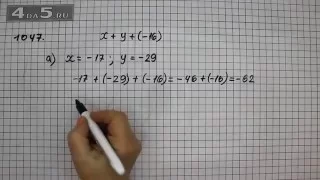 4DA5RU
1047. x + y + (-16)
а) x = -17 ; y = -29
-17 + (-29) + (-16) = -46 + (-16) = -62